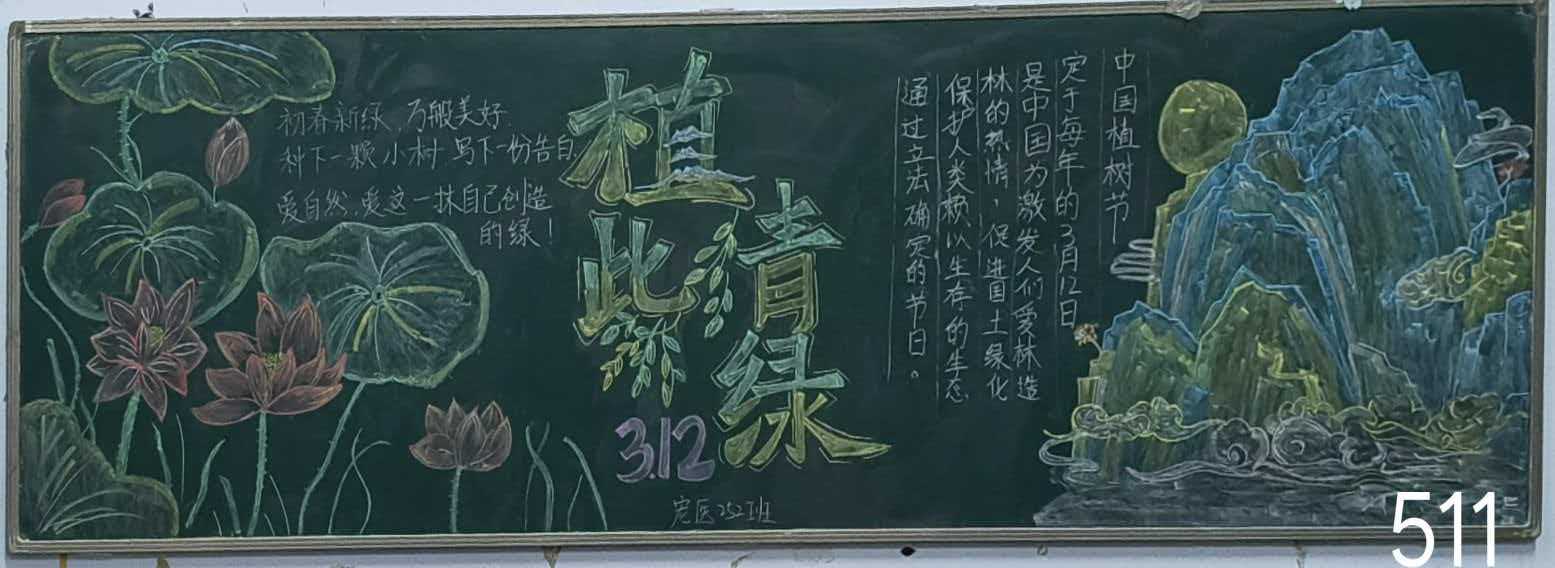 初春新绿，万般美好.
种下一颗小树，写下一份告白.
爱自然，爱这一抹自己创造
的绿！
植
此
青
绿
3.12
宠医252班
中国植树节
定于每年的3月12日
是中国为激发人们爱林造
林的热情，促进国土绿化
保护人类赖以生存的生态
通过立法确定的节日。
511